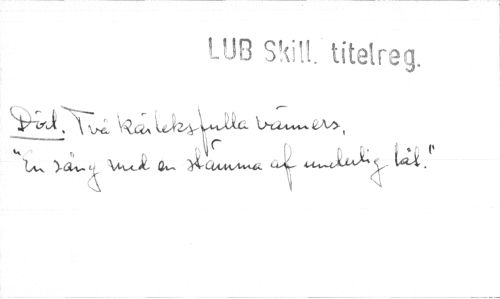 LUB Skill. titelreg.
Död. Två kärleksfulla vänners,
"En sång med en stämma af underlig låt."